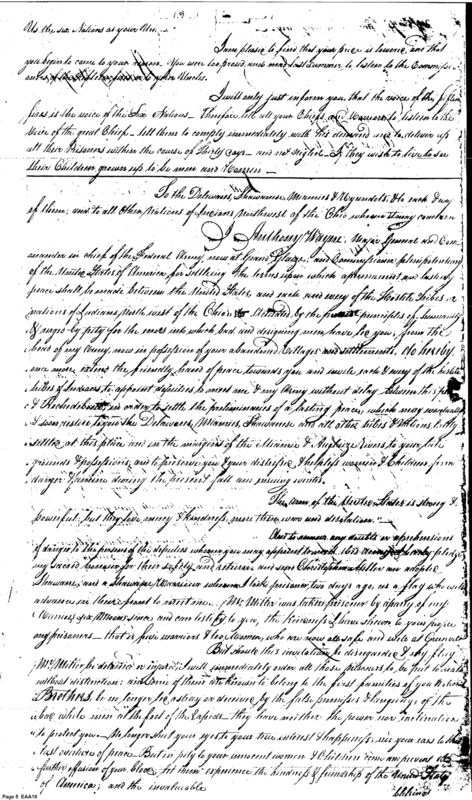 (3)
Us the six Nations as your Uncles.
I am please to find that your price is lowered, and that
you begin to come to your reason. You were too proud and mad last Summer to listen to the
your Uncles.
I will only just inform you, that the voice of the fifteen
fires is the voice of the Six Nations - Therefore tell all your Chiefs and Warriors to listen to the
Voice of the great Chief - tell them to comply immediately with his demand and to deliver up
all their Prisoners within the course of Thirty days - and not neglect - if they wish to live to see
their Children grown up to be men and Women -
To the Delawares, Shawanese, Miamies & Wyandots, & to each & any
of them; and to all other Nations of Indians Northwest of the Ohio, whom it may concern
I Anthony Wayne, Major General and Com-
mander in chief of the Federal Army, now at Grand Glaize, and Commissioner plenipotentiary
of the United States of America for settling the terms upon which a permanent and lasting
peace shall be made between the United States and each and every of the Hostile Tribes or
Nations of Indians North west of the Ohio Actuated by the principles of humanity
& urged by pity for the errors into which bad and designing men have led you, from the
head of my Army, now in possession of your abandoned Villages and settlements, do hereby
once more extend the friendly hand of peace towards you and invite each & every of the hostile
tribes of Indians to appoint deputies to meet me & my Army without delay between this place
& Roche de Bout, in order to settle the preliminaries of a lasting peace, which may eventually
& soon restore to you the Delawares, Miamies, Shawanese and all other tribes & Nations lately
settled at this place and on the margins of the Miamie & Auglaize Rivers to your late
grounds & possessions, and to preserve you & your distressed & helpless women & Children from
danger & famine during the present fall and ensuing winter.
The arm of the United States is strong &
powerful; but they love mercy & kindness, more than war and desolation.
And to remove any doubts or apprehensions
of danger to the persons of the deputies whom you may appoint to meet this Army I hereby pledge
my sacred honour for their safety and return and send Christopher Miller an adopted
Shawanee, and a Shawanee Warrior whom I took prisoner two days ago, as a flag who will
advance in their front to meet me. Mr. Miller was taken prisoner by a party of my
Warriors six Moons since and can testify to you, the kindness I have shewn to your people
my prisoners - that is five warriors & two Women, who are now all safe and well at Greenville
But should this invitation be disregarded & my flag
Mr. Miller, be detained or injured; I will immediately order all those prisoners to be put to death
without distinction; and some of them are known to belong to the first families of your Nations
Brothers, be no longer led astray or deceived by the false promises & language of the
bad white men at the foot of the Rapids - they have neither the power nor inclination
to protect you - No longer shut your eyes to your true interest & happiness, nor your ears to this
last overture of peace. But in pity to your innocent women & Children come and prevent the
further effusion of your blood. Let them experience the kindness & friendship of the United States
of America; and the invaluable
Page 5 EAA19